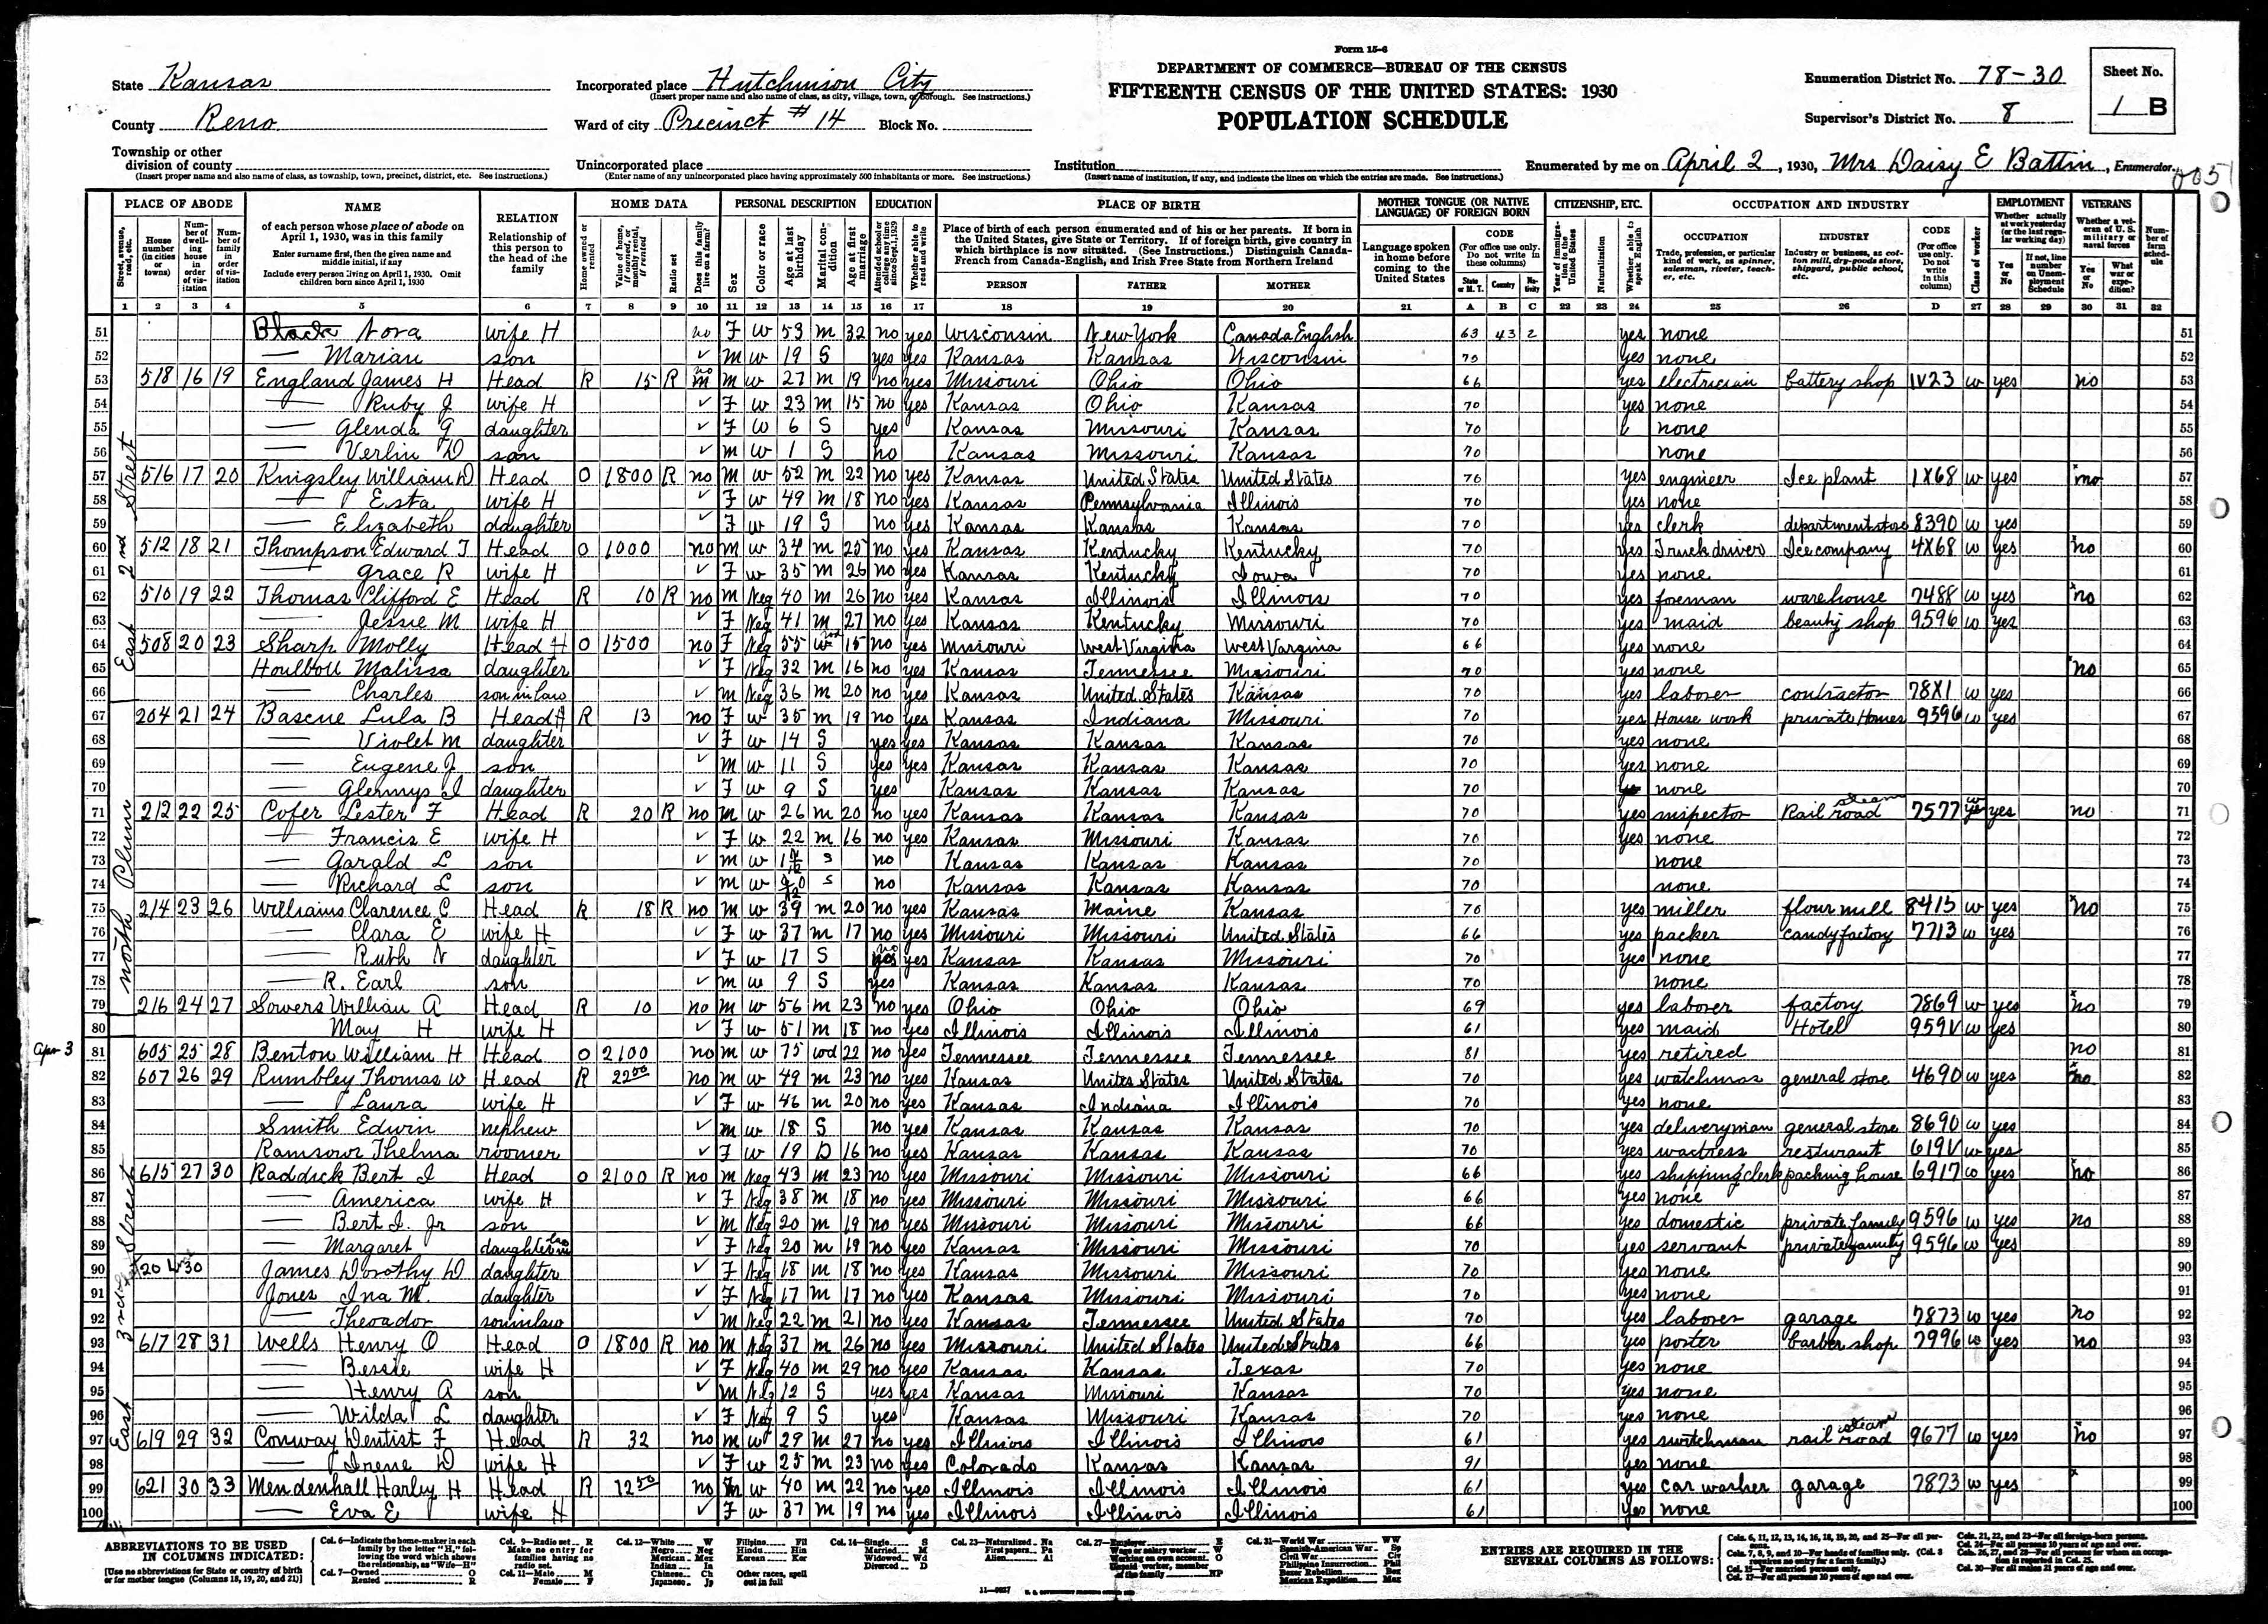 Form 15-6
DEPARTMENT OF COMMERCE—BUREAU OF THE CENSUS
FIFTEENTH CENSUS OF THE UNITED STATES: 1930
POPULATION SCHEDULE
State Kansas
County Reno
Township or other division of county
(Insert proper name and also name of class, as township, town, precinct, district, etc. See instructions.)
Incorporated place Hutchinson City
(Insert proper name and also name of class, as city, village, town, or borough. See instructions.)
Ward of city Precinct # 14 Block No.
Unincorporated place
(Enter name of any unincorporated place having approximately 500 inhabitants or more. See instructions.)
Institution
(Insert name of institution, if any, and indicate the lines on which the entries are made. See instructions.)
Enumeration District No. 78-30
Supervisor's District No. 8
Sheet No. 1 B
Enumerated by me on April 2, 1930, Mrs Daisy E Battin, Enumerator.
PLACE OF ABODE NAME RELATION HOME DATA PERSONAL DESCRIPTION EDUCATION PLACE OF BIRTH MOTHER TONGUE (OR NATIVE LANGUAGE) OF FOREIGN BORN CITIZENSHIP, ETC. OCCUPATION AND INDUSTRY EMPLOYMENT VETERANS
1 2 3 4 5 6 7 8 9 10 11 12 13 14 15 16 17 18 19 20 21 A B C 22 23 24 25 26 D 27 28 29 30 31 32
51 Nora wife H no F W 53 m 32 no yes Wisconsin New York Canada English 63 43 2 yes none 51
52 — Marian son ✓ m w 19 S yes yes Kansas Kansas Wisconsin 70 yes none 52
53 518 16 19 England James H Head R 15 R no m w 27 m 19 no yes Missouri Ohio Ohio 66 yes electrician battery shop 1V23 w yes no 53
54 — Ruby J wife H ✓ F w 23 m 15 no yes Kansas Ohio Kansas 70 yes none 54
55 — Glenda G daughter ✓ F W 6 S yes Kansas Missouri Kansas 70 none 55
56 — Verlin D son ✓ m w 1 S no Kansas Missouri Kansas 70 none 56
57 516 17 20 Kingsley William D Head O 1800 R no m w 52 m 22 no yes Kansas United States United States 70 yes engineer Ice plant 1X68 w yes no 57
58 — Esta wife H ✓ F w 49 m 18 no yes Kansas Pennsylvania Illinois 70 yes none 58
59 — Elizabeth daughter ✓ F w 19 S no yes Kansas Kansas Kansas 70 yes clerk department store 8390 w yes 59
60 512 18 21 Thompson Edward T Head O 1000 no m w 34 m 25 no yes Kansas Kentucky Kentucky 70 yes Truck driver Ice company 4X68 w yes no 60
61 — Grace R wife H ✓ F w 35 m 26 no yes Kansas Kentucky Iowa 70 yes none 61
62 510 19 22 Thomas Clifford E Head R 10 R no m Neg 40 m 26 no yes Kansas Illinois Illinois 70 yes foreman warehouse 7488 w yes no 62
63 — Jessie M wife H ✓ F Neg 41 m 27 no yes Kansas Kentucky Missouri 70 yes maid beauty shop 9596 w yes 63
64 508 20 23 Sharp Molly Head H O 1500 no F Neg 55 wd 15 no yes Missouri West Virginia West Varginia 66 yes none 64
65 Houlbou Malissa daughter ✓ F Neg 32 m 16 no yes Kansas Tennessee Missouri 70 yes none no 65
66 — Charles son in law ✓ m Neg 36 m 20 no yes Kansas United States Kansas 70 yes laborer contractor 78X1 w yes 66
67 204 21 24 Bascue Lula B Head H R 13 no F w 35 m 19 no yes Kansas Indiana Missouri 70 yes House work private Homes 9596 w yes 67
68 — Violet M daughter ✓ F w 14 S yes yes Kansas Kansas Kansas 70 yes none 68
69 — Eugene J son ✓ m w 11 S yes yes Kansas Kansas Kansas 70 yes none 69
70 — Glennys I daughter ✓ F w 9 S yes Kansas Kansas Kansas 70 none 70
71 212 22 25 Cofer Lester F Head R 20 R no m w 26 m 20 no yes Kansas Kansas Kansas 70 yes inspector steam Rail road 7577 w yes no 71
72 — Francis E wife H ✓ F w 22 m 16 no yes Kansas Missouri Kansas 70 yes none 72
73 — Garald L son ✓ m w S no Kansas Kansas Kansas 70 none 73
74 — Richard L son ✓ m w S no Kansas Kansas Kansas 70 none 74
75 214 23 26 Williams Clarence C Head R 18 R no m w 39 m 20 no yes Kansas Maine Kansas 70 yes miller flour mill 8415 w yes no 75
76 — Clara E wife H ✓ F w 37 m 17 no yes Missouri Missouri United States 66 yes packer candy factory 7713 w yes 76
77 — Ruth N daughter ✓ F w 17 S no yes Kansas Kansas Missouri 70 yes none 77
78 — R. Earl son ✓ m w 9 S yes Kansas Kansas Kansas 70 none 78
79 216 24 27 Sowers William A Head R 10 no m w 56 m 23 no yes Ohio Ohio Ohio 69 yes laborer factory 7869 w yes no 79
80 May H wife H ✓ F w 51 m 18 no yes Illinois Illinois Illinois 61 yes maid Hotel 959V w yes 80
apr 3 81 605 25 28 Benton William H Head O 2100 no m w 75 wd 22 no yes Tennessee Tennessee Tennessee 81 yes retired no 81
82 607 26 29 Rumbley Thomas W Head R 22 50 no m w 49 m 23 no yes Kansas Unites States United States 70 yes watchman general store 4690 w yes no 82
83 — Laura wife H ✓ F w 46 m 20 no yes Kansas Indiana Illinois 70 yes none 83
84 Smith Edwin nephew ✓ m w 18 S no yes Kansas Kansas Kansas 70 yes deliveryman general store 8690 w yes 84
85 Ramsour Thelma roomer ✓ F w 19 D 16 no yes Kansas Kansas Kansas 70 yes waitress resturant 619V w yes 85
86 615 27 30 Raddick Bert I Head O 2100 R no m Neg 43 m 23 no yes Missouri Missouri Missouri 66 yes shipping clerk packing house 6917 w yes no 86
87 — America wife H ✓ F Neg 38 m 18 no yes Missouri Missouri Missouri 66 yes none 87
88 — Bert I. Jr son ✓ m Neg 20 m 19 no yes Missouri Missouri Missouri 66 yes domestic private family 9596 w yes no 88
89 — Margaret daughter in law ✓ F Neg 20 m 19 no yes Kansas Missouri Missouri 70 yes servant private family 9596 w yes 89
90 James Dorothy D daughter ✓ F Neg 18 m 18 no yes Kansas Missouri Missouri 70 yes none 90
91 Jones Ina M. daughter ✓ F Neg 17 m 17 no yes Kansas Missouri Missouri 70 yes none 91
92 — Theoador son in law ✓ m Neg 22 m 21 no yes Kansas Tennessee United States 70 yes laborer garage 7873 w yes no 92
93 617 28 31 Wells Henry O Head O 1800 R no m Neg 37 m 26 no yes Missouri United States United States 66 yes porter barber shop 7996 w yes no 93
94 — Bessie wife H ✓ F Neg 40 m 29 no yes Kansas Kansas Texas 70 yes none 94
95 — Henry A son ✓ m Neg 12 S yes yes Kansas Missouri Kansas 70 yes none 95
96 — Wilda L daughter ✓ F Neg 9 S yes Kansas Missouri Kansas 70 yes none 96
97 619 29 32 Conway Dentist F Head R 32 no m w 29 m 27 no yes Illinois Illinois Illinois 61 yes switchman steam rail road 9677 w yes no 97
98 — Irene D wife H ✓ F w 25 m 23 no yes Colorado Kansas Kansas 91 yes none 98
99 621 30 33 Mendenhall Harley H Head R 12 50 no m w 40 m 22 no yes Illinois Illinois Illinois 61 yes car washer garage 7873 w yes 99
100 — Eva E wife H ✓ F w 37 m 19 no yes Illinois Illinois Illinois 61 yes none 100
East 2nd Street
north Plum
East 3rd Street
ABBREVIATIONS TO BE USED IN COLUMNS INDICATED:
[Use no abbreviations for State or country of birth or for mother tongue (Columns 18, 19, 20, and 21)]
ENTRIES ARE REQUIRED IN THE SEVERAL COLUMNS AS FOLLOWS: